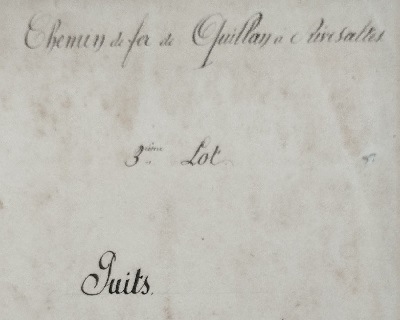 Chemin de fer de Quillan à Rivesaltes
3ième Lot
Puits.